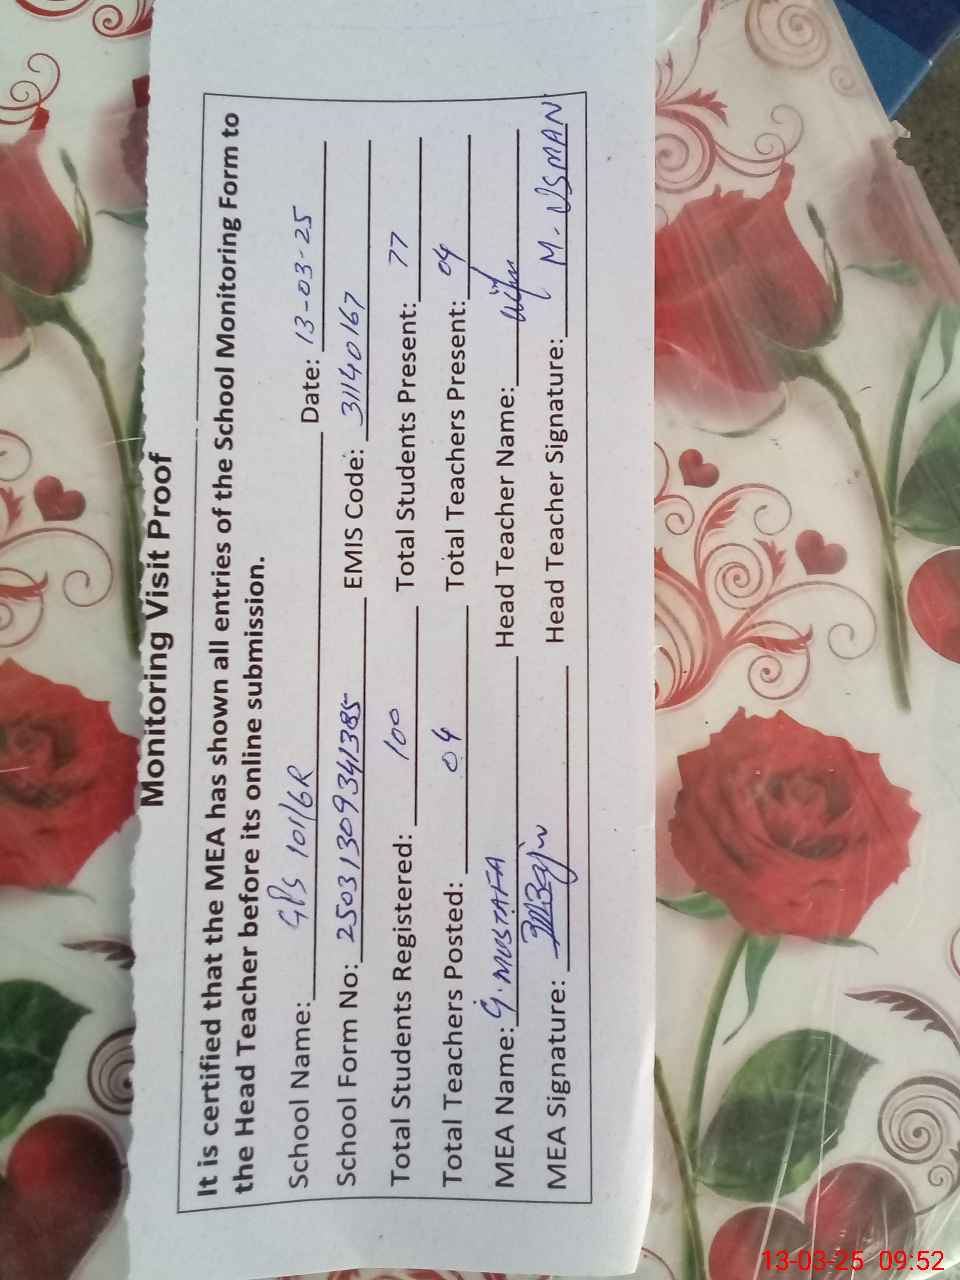 Monitoring Visit Proof
It is certified that the MEA has shown all entries of the School Monitoring Form to
the Head Teacher before its online submission.
School Name: GPS 101/6R Date: 13-03-25
School Form No: 25031309341385 EMIS Code: 31140167
Total Students Registered: 100 Total Students Present: 77
Total Teachers Posted: 04 Total Teachers Present: 04
MEA Name: G. MUSTAFA Head Teacher Name:
MEA Signature: Head Teacher Signature: M. USMAN
13-03-25 09:52